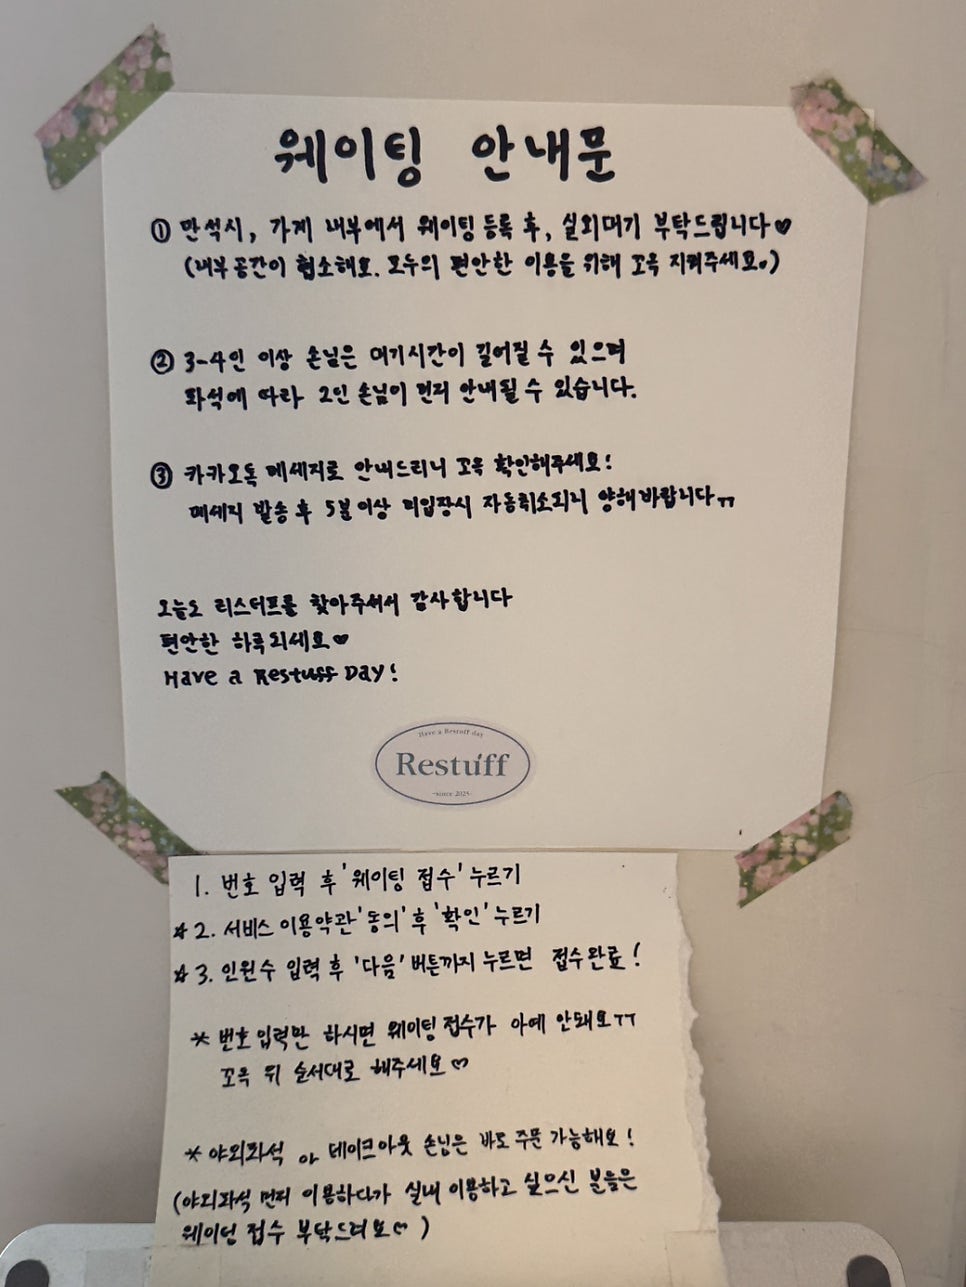 웨이팅 안내문
① 만석시, 가게 내부에서 웨이팅 등록 후, 실외대기 부탁드립니다♥
(내부 공간이 협소해요. 모두의 편안한 이용을 위해 꼬옥 지켜주세요.)
② 3-4인 이상 손님은 대기시간이 길어질 수 있으며
좌석에 따라 2인 손님이 먼저 안내될 수 있습니다.
③ 카카오톡 메세지로 안내드리니 꼬옥 확인해주세요!
메세지 발송 후 5분이상 미입장시 자동취소되니 양해바랍니다ㅠ
오늘도 리스터프를 찾아주셔서 감사합니다
편안한 하루되세요♥
Have a Restuff DAY!
Have a Restuff day
Restuff
-since 2025-
1. 번호 입력 후 '웨이팅 접수' 누르기
☆2. 서비스 이용약관 '동의' 후 '확인' 누르기
☆3. 인원수 입력 후 '다음' 버튼까지 누르면 접수완료!
* 번호입력만 하시면 웨이팅접수가 아예 안돼요ㅠㅠ
꼬옥 뒤 순서대로 해주세요♡
* 야외좌석 or 테이크아웃 손님은 바로 주문 가능해요!
(야외좌석 먼저 이용하다가 실내 이용하고 싶으신 분들은
웨이팅 접수 부탁드려요♡)